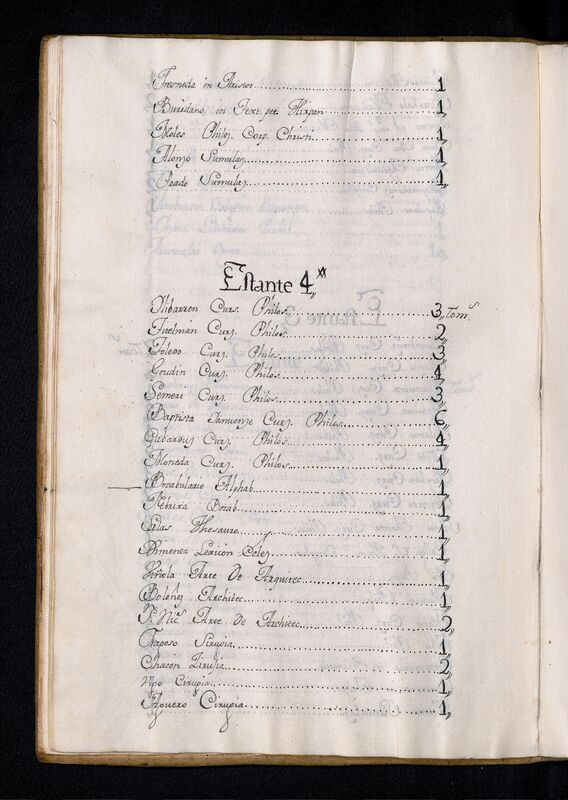 Fresneda in Aristot. 1
Buridano, in Text. pet. Hispan 1
Moles Philos. Corp. Christi 1
Alonso Sumulas 1
Prado Sumulas 1
Estante 4
Ilibarren Curs. Philos. 3, tom.s
Fuelman Curs. Philos. 2
Toledo Curs. Philos. 3
Goudin Curs. Philos. 4
Semeri Curs. Philos. 3
Baptista Curs. Philos. 6
Gubarrus Curs. Philos. 4
Moneda Curs. Philos. 1
Bocabulario Alphab. 1
Nebrixa Bocab. 1
Salas Thesauro 1
Ximenez Lexicon Coles. 1
Viñola Arte De Arquitec. 1
Boloñes Architec. 1
Arte De Architec. 2
Traposo Sirugia 1
Chacon Zirujia 2
Vigo Cirugia 1
Aguero Cirugia 1